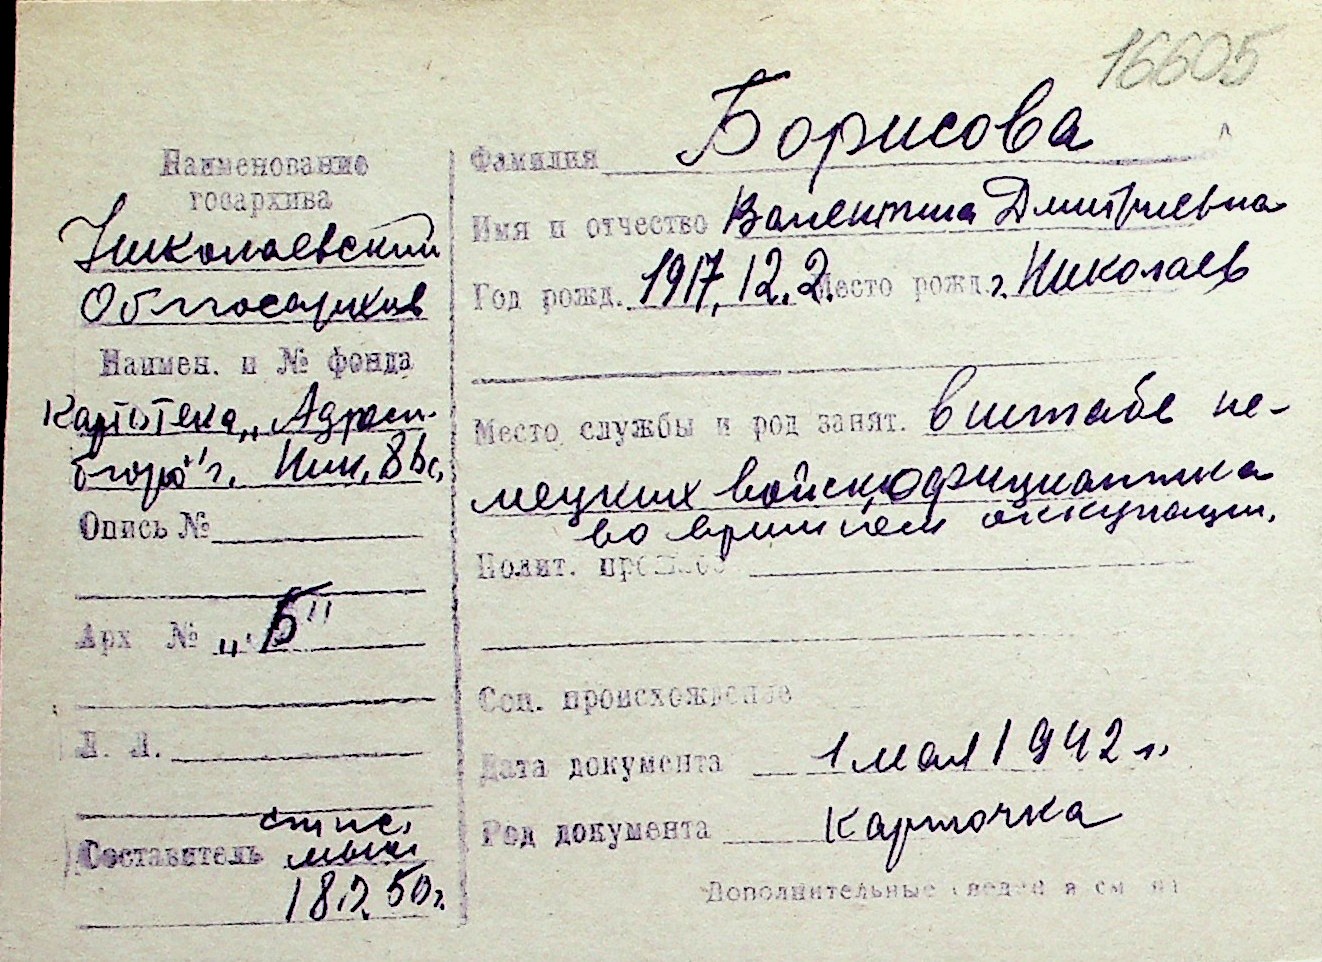 16605
Наименование
госархива
Николаевский
Облгосархив
Наимен. и № фонда
Картотека „Адресн.
бюро" г. Ник.
Опись №
Арх № „Б"
Л. Л.
Составитель
18.2.50г.
Фамилия Борисова
Имя и отчество Валентина Дмитриевна
Год рожд. 1917.12.2. Место рожд. г. Николаев
Место службы и род занят. в штабе не-
мецких войск, официантка
во время оккупации.
Полит. прошлое
Соц. происхождение
Дата документа 1 мая 1942 г.
Род документа Карточка
Дополнительные сведен я см